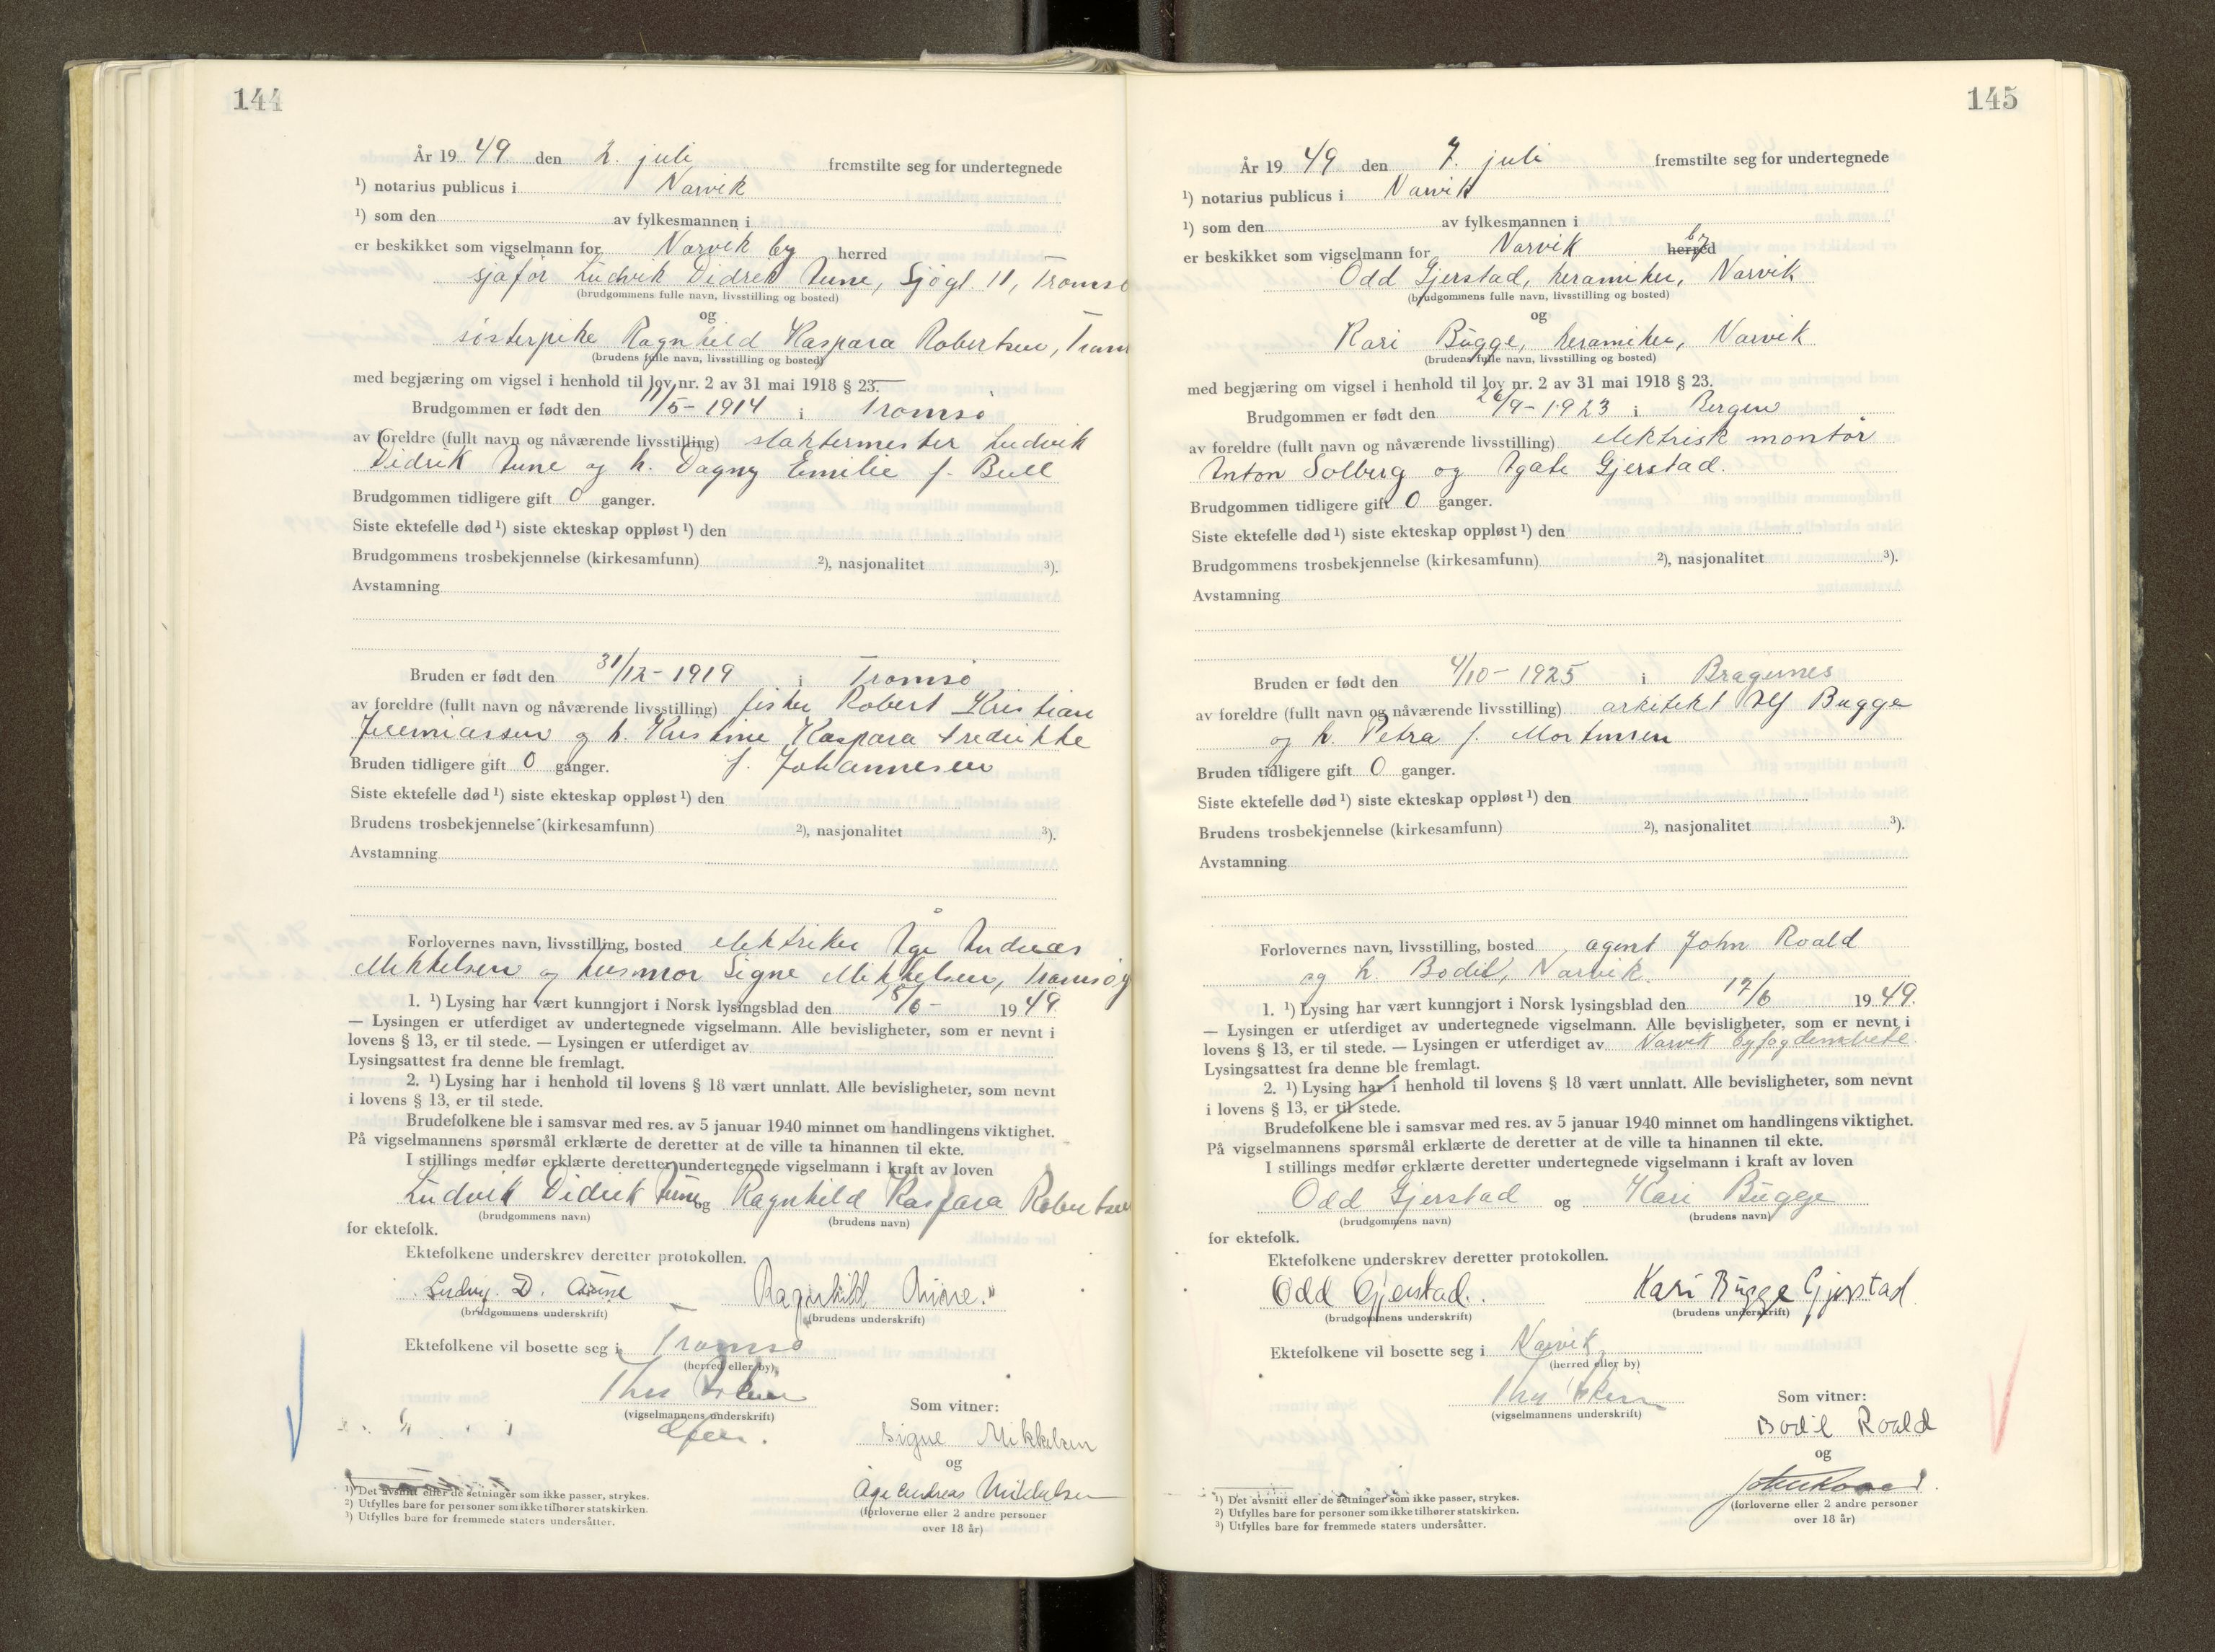 144
År 19 49 den 2. juli fremstilte seg for undertegnede
¹) notarius publicus i Narvik
¹) som den av fylkesmannen i
er beskikket som vigselmann for Narvik by herred
sjåfør Ludvik Didrek Aune, Sjøgt. 11, Tromsø
(brudgommens fulle navn, livsstilling og bosted)
og
søsterpike Ragnhild Kaspara Robertsen, Troms
(brudens fulle navn, livsstilling og bosted)
med begjæring om vigsel i henhold til lov nr. 2 av 31 mai 1918 § 23.
Brudgommen er født den 11/5-1914 i Tromsø
av foreldre (fullt navn og nåværende livsstilling) slaktermester Ludvik
Didrik Aune og h. Dagny Emilie f. Bull
Brudgommen tidligere gift 0 ganger.
Siste ektefelle død ¹) siste ekteskap oppløst ¹) den
Brudgommens trosbekjennelse (kirkesamfunn) ²), nasjonalitet ³).
Avstamning
Bruden er født den 31/12-1919 i Tromsø
av foreldre (fullt navn og nåværende livsstilling) fisker Robert Kristian
Jeremiassen og h. Kristine Kaspara Fredrikke
Bruden tidligere gift 0 ganger. f. Johannesen
Siste ektefelle død ¹) siste ekteskap oppløst ¹) den
Brudens trosbekjennelse (kirkesamfunn) ²), nasjonalitet ³).
Avstamning
Forlovernes navn, livsstilling, bosted elektriker Åge Andreas
Mikkelsen og husmor Signe Mikkelsen, Tromsø
1. ¹) Lysing har vært kunngjort i Norsk lysingsblad den 15/6- 19 49.
— Lysingen er utferdiget av undertegnede vigselmann. Alle bevisligheter, som er nevnt i
lovens § 13, er til stede. — Lysingen er utferdiget av
Lysingsattest fra denne ble fremlagt.
2. ¹) Lysing har i henhold til lovens § 18 vært unnlatt. Alle bevisligheter, som nevnt
i lovens § 13, er til stede.
Brudefolkene ble i samsvar med res. av 5 januar 1940 minnet om handlingens viktighet.
På vigselmannens spørsmål erklærte de deretter at de ville ta hinannen til ekte.
I stillings medfør erklærte deretter undertegnede vigselmann i kraft av loven
Ludvik Didrek Aune og Ragnhild Kaspara Robertsen
(brudgommens navn) (brudens navn)
for ektefolk.
Ektefolkene underskrev deretter protokollen.
Ludvig. D. Aune Ragnhild Aune.
(brudgommens underskrift) (brudens underskrift)
Ektefolkene vil bosette seg i Tromsø
(herred eller by)
(vigselmannens underskrift)
Som vitner:
Signe Mikkelsen
og
Åge Andreas Mikkelsen
(forloverne eller 2 andre personer
over 18 år)
¹) Det avsnitt eller de setninger som ikke passer, strykes.
²) Utfylles bare for personer som ikke tilhører statskirken.
³) Utfylles bare for fremmede staters undersåtter.
145
År 19 49 den 7. juli fremstilte seg for undertegnede
¹) notarius publicus i Narvik
¹) som den av fylkesmannen i
er beskikket som vigselmann for Narvik herred by
Odd Gjerstad, keramiker, Narvik
(brudgommens fulle navn, livsstilling og bosted)
og
Kari Bugge, keramiker, Narvik
(brudens fulle navn, livsstilling og bosted)
med begjæring om vigsel i henhold til lov nr. 2 av 31 mai 1918 § 23.
Brudgommen er født den 26/9-1923 i Bergen
av foreldre (fullt navn og nåværende livsstilling) elektrisk montør
Anton Solberg og Agate Gjerstad.
Brudgommen tidligere gift 0 ganger.
Siste ektefelle død ¹) siste ekteskap oppløst ¹) den
Brudgommens trosbekjennelse (kirkesamfunn) ²), nasjonalitet ³).
Avstamning
Bruden er født den 4/10-1925 i Bragernes
av foreldre (fullt navn og nåværende livsstilling) arkitekt Alf Bugge
og h. Petra f. Mortensen
Bruden tidligere gift 0 ganger.
Siste ektefelle død ¹) siste ekteskap oppløst ¹) den
Brudens trosbekjennelse (kirkesamfunn) ²), nasjonalitet ³).
Avstamning
Forlovernes navn, livsstilling, bosted agent John Roald
og h. Bodil, Narvik.
1. ¹) Lysing har vært kunngjort i Norsk lysingsblad den 17/6 19 49.
— Lysingen er utferdiget av undertegnede vigselmann. Alle bevisligheter, som er nevnt i
lovens § 13, er til stede. — Lysingen er utferdiget av Narvik byfogdembete
Lysingsattest fra denne ble fremlagt.
2. ¹) Lysing har i henhold til lovens § 18 vært unnlatt. Alle bevisligheter, som nevnt
i lovens § 13, er til stede.
Brudefolkene ble i samsvar med res. av 5 januar 1940 minnet om handlingens viktighet.
På vigselmannens spørsmål erklærte de deretter at de ville ta hinannen til ekte.
I stillings medfør erklærte deretter undertegnede vigselmann i kraft av loven
Odd Gjerstad og Kari Bugge
(brudgommens navn) (brudens navn)
for ektefolk.
Ektefolkene underskrev deretter protokollen.
Odd Gjerstad. Kari Bugge Gjerstad
(brudgommens underskrift) (brudens underskrift)
Ektefolkene vil bosette seg i Narvik
(herred eller by)
(vigselmannens underskrift)
Som vitner:
Bodil Roald
og
John Roald
(forloverne eller 2 andre personer
over 18 år)
¹) Det avsnitt eller de setninger som ikke passer, strykes.
²) Utfylles bare for personer som ikke tilhører statskirken.
³) Utfylles bare for fremmede staters undersåtter.